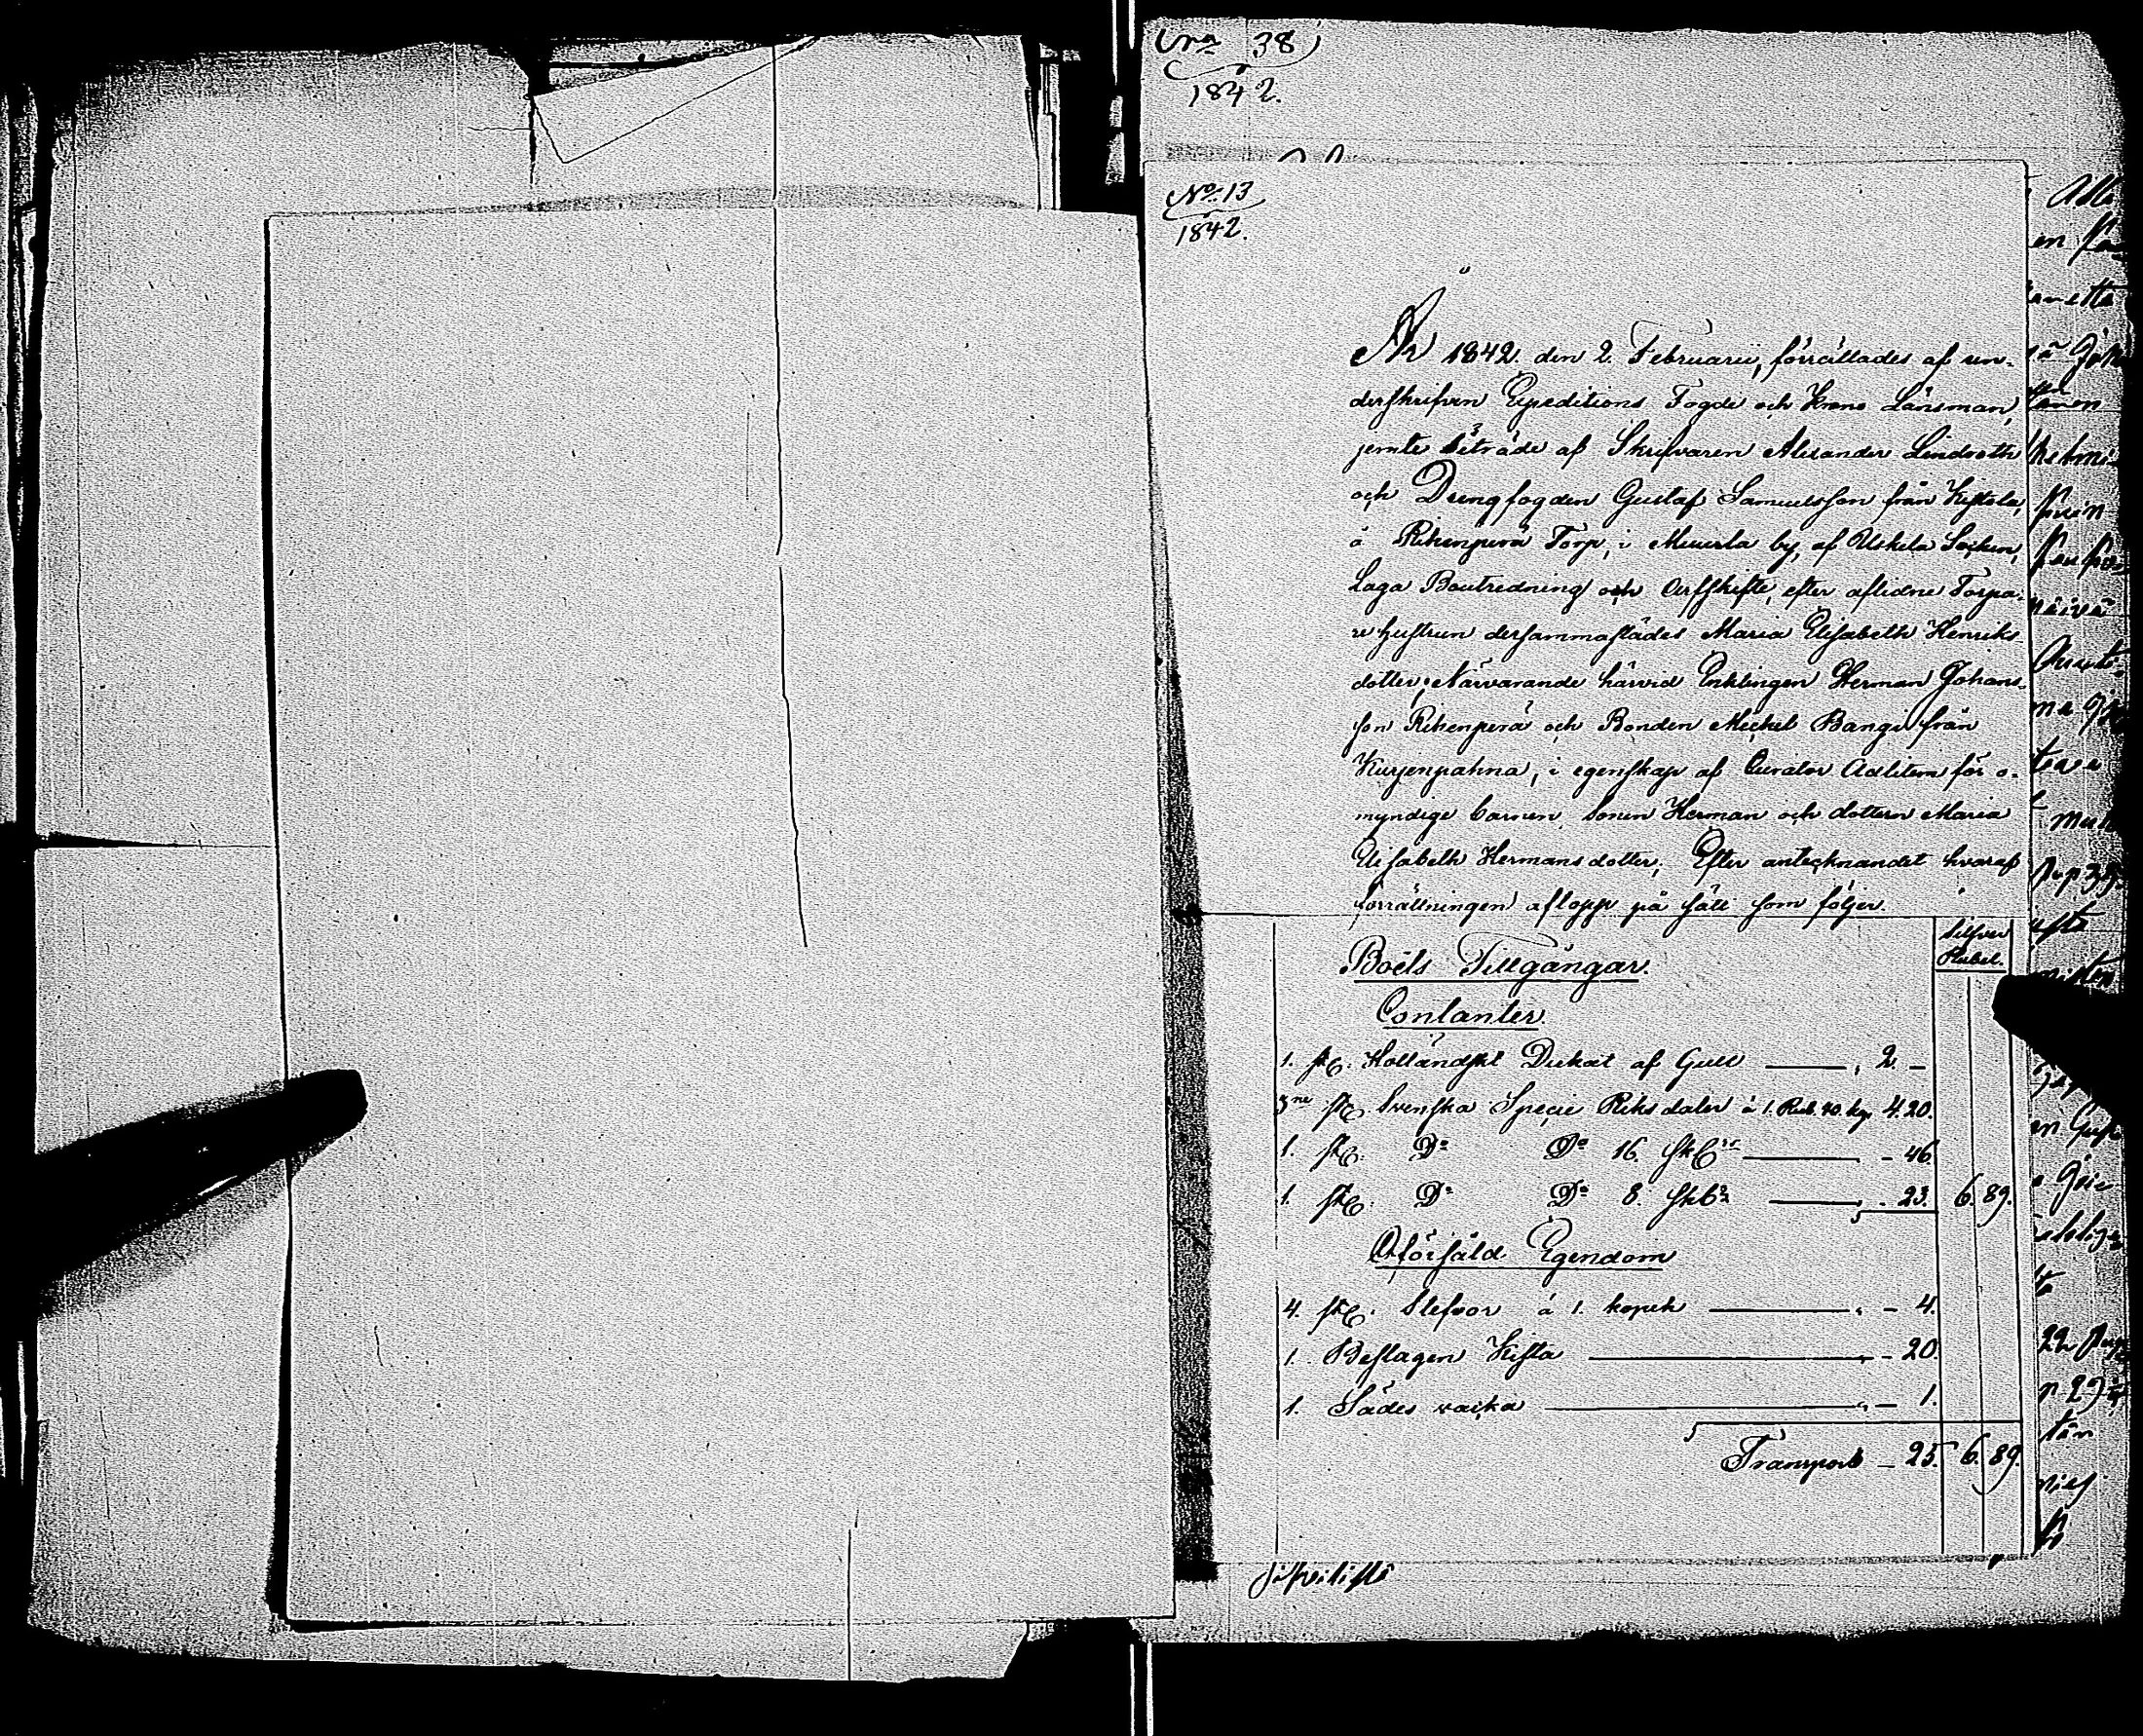 No 38
1842.
No 13
1842.
År 1842 den 2. Februarii, förrättades af un-
derskrifven Expeditions Fogde och Krono Länsman,
jemte biträde af Skrifvaren Alexander Lindroth
och Drengfogden Gustaf Samuelsson från Kistola,
å Rikenperä Torp, i Muurla by, af Uskela Socken,
Laga Boutredning och Arfskifte, efter aflidne Torpa-
re hustrun dersammastädes Maria Elisabeth Henriks-
dotter; Närvarande härvid Enklingen Herman Johans-
son Rikenperä och Bonden Mickel Bangi från
Kurjenpahna, i egenskap af Curator Adlitem för o-
myndige barnen Sonen Herman och dottern Maria
Elisabeth Hermansdotter; Efter antecknandet hvaraf
förrättningen aflopp på sätt som följer.
Silfver
Rubel.
Boëts Tillgångar.
Contanter.
1. st. Holländskt Dukat af Guld 2. –
3ne st. Svenska Specie Riksdaler à 1. Rub. 40. kop. 4. 20.
1. st. Do Do 16. sk. – 46.
1. st. Do Do 8. sk. – 23. 6. 89.
Oförsåld Egendom
4. st. Stefvor á 1. kopek – 4.
1. Beslagen Kista – 20.
1. Sädes vacka – 1.
Transport – 25. 6. 89.